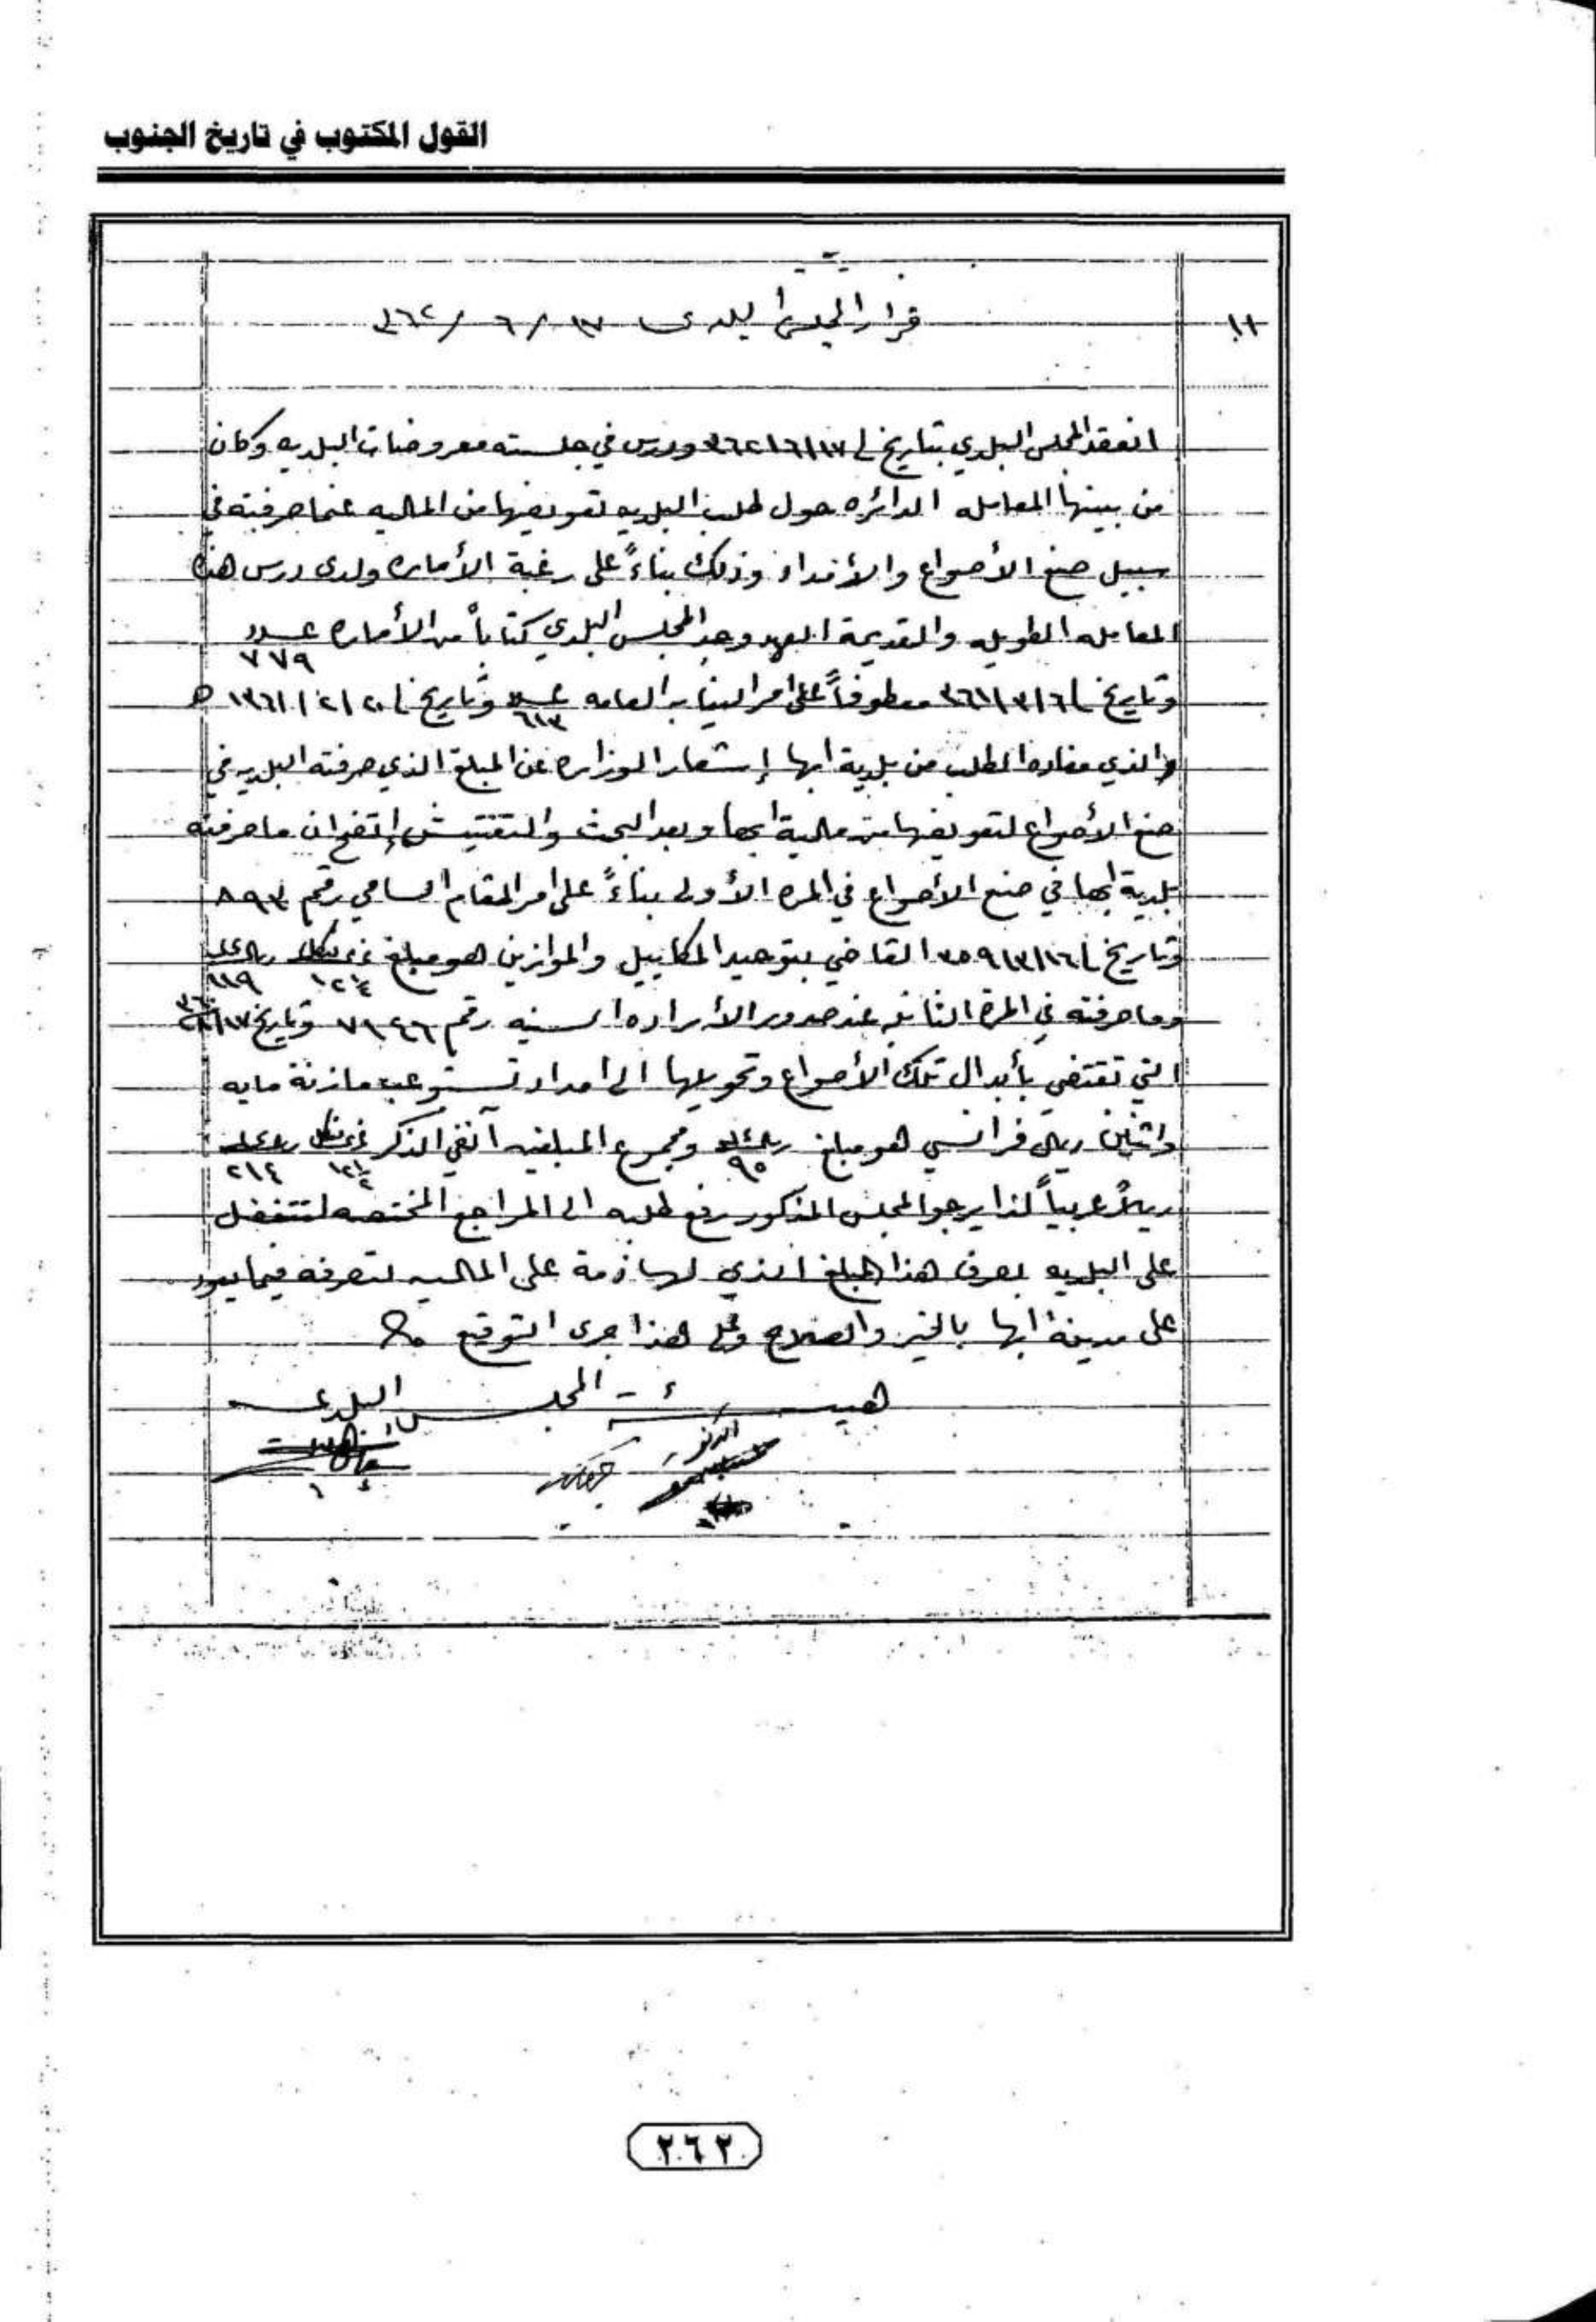 القول المكتوب في تاريخ الجنوب
١١
قرار المجلس البلدي ١٧ / ٦ / ٣٦٢
انعقد المجلس البلدي بتاريخ ١٧/٦/٣٦٢ ودرس في جلسته معروضات البلديه وكان
من بينها المعامله الدائره حول طلب البلديه تعويضها من الماليه عنما صرفته في
سبيل صنع الأصواع والأمداد وذلك بناءً على رغبة الأماره ولدى درس هذه
المعامله الطويله والقديمة العهد وجد المجلس البلدي كتاباً من الأماره عدد ٧٧٩
وتاريخ ٦/٣/٣٦١ معطوفاً على امر النيابه العامه عدد ٦١٣ وتاريخ ٢٠/٢/١٣٦١ هـ
والذي مفاده الطلب من بلدية ابها إشعار الوزاره عن المبلغ الذي صرفته البلديه في
صنع الأصواع لتعويضها من مالية ابها وبعد البحث والتفتيش إتضح ان ما صرفته
بلدية ابها في صنع الأصواع في المره الأولى بناءً على امر المقام السامي رقم ٨٩٣
وتاريخ ١٦/٣/٣٥٩ القاضي بتوحيد المكاييل والموازين هو مبلغ ١٢١/٤ ريال ١١٩
وما صرفته في المرة الثانيه عند صدور الأراده السنيه رقم ٧١٤٦٦ وتاريخ
التي تقتضي بأبدال تلك الأصواع وتحويلها الى امداد تستوعب مازنة مايه
واثنين ريال فرانسي هو مبلغ ريال ٩٥ ومجموع المبلغين آنفي الذكر ١٢١/٤ ريال ٢١٤
ريالاً عربياً لذا يرجو المجلس المذكور رفع طلبه الى المراجع المختصه لتتفضل
على البلديه بصرف هذا المبلغ الذي لها ذمة على الماليه لتصرفه فيما يعود
على مدينة ابها بالخير والصلاح وعلى هذا جرى التوقيع
هيئة المجلس البلدي
٢٦٢